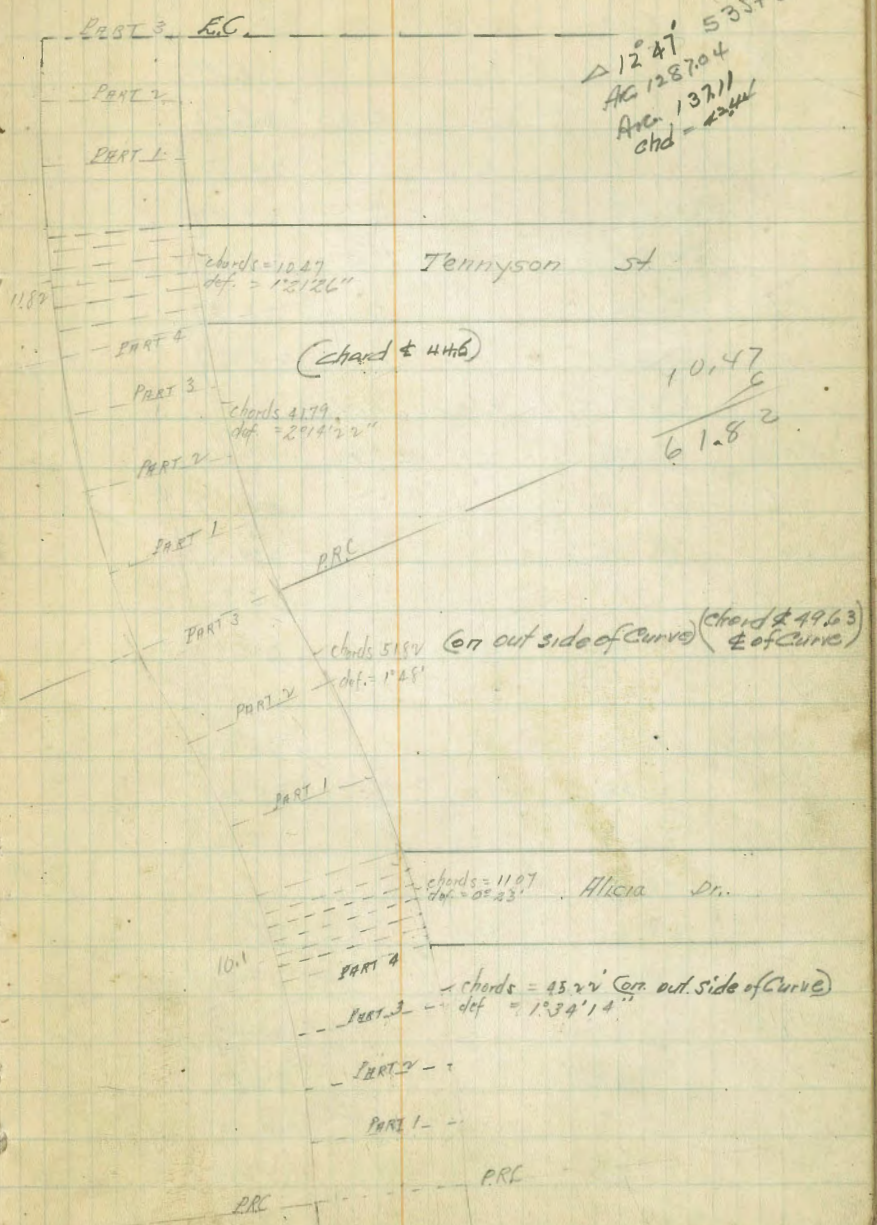 PART 3 E.C.
Δ 12° 47'
Arc 1287.04
Arc 137.11
chd = 42.44
PART 2
PART 1
chords = 10.47
def. = 1°21'26"
Tennyson St
11.82
PART 4
(chord ⅊ 44.6)
10.47
6
61.82
PART 3
chords 41.79
def. = 2°14'22"
PART 2
PART 1
P.R.C
PART 3
chords 51.82 (on out side of Curve) (chord ⅊ 49.63
⅊ of Curve)
def. = 1°48'
PART 2
PART 1
chords = 11.07
def = 0°23'
Alicia Dr.
10.1
PART 4
chords = 45.22' (on out side of Curve)
PART 3
def = 1°34'14"
PART 2
PART 1
P.R.C
P.R.C